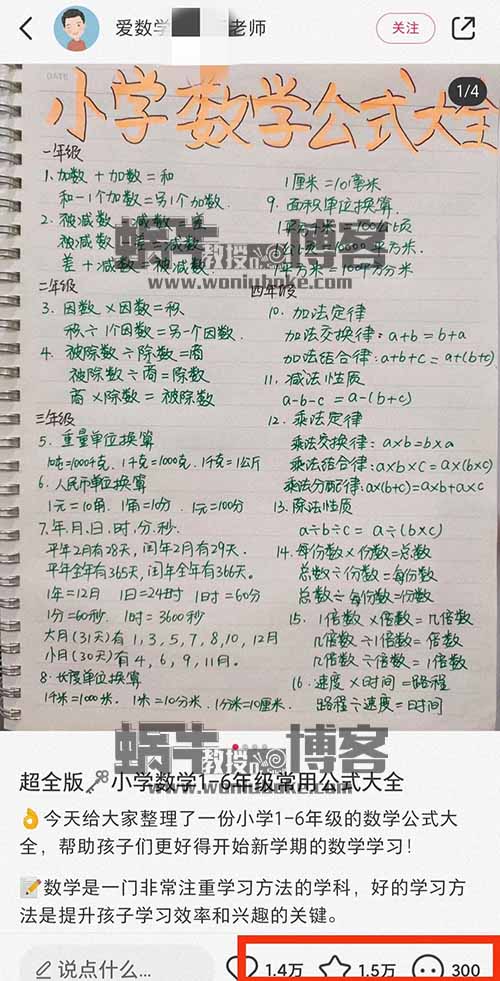 爱数学
老师
关注
1/4
DATE
小学数学公式大全
一年级
1.加数+加数=和
和-一个加数=另1个加数.
2.被减数-减数=差
被减数-差=减数
差+减数=被减数
二年级
3.因数×因数=积
积÷1个因数=另一个因数.
4.被除数÷除数=商
被除数÷商=除数
商×除数=被除数
三年级
5.重量单位换算
1吨=1000千克. 1千克=1000克. 1千克=1公斤
6.人民币单位换算
1元=10角. 1角=10分. 1元=100分
7.年.月.日.时.分.秒.
平年2月有28天,闰年2月有29天.
平年全年有365天,闰年全年有366天.
1年=12月 1日=24时 1时=60分
1分=60秒. 1时=3600秒
大月(31天)有1,3,5,7,8,10,12月
小月(30天)有4,6,9,11月.
8.长度单位换算
1千米=1000米. 1米=10分米. 1分米=10厘米.
1厘米=10毫米
9.面积单位换算.
1平方千米=100公顷
1公顷=10000平方米.
1平方米=100平方分米
四年级
10.加法定律
加法交换律:a+b=b+a
加法结合律:a+b+c=a+(b+c)
11.减法性质
a-b-c=a-(b+c)
12.乘法定律
乘法交换律:a×b=b×a
乘法结合律:a×b×c=a×(b×c)
乘法分配律:a×(b+c)=a×b+a×c
13.除法性质
a÷b÷c=a÷(b×c)
14.每份数×份数=总数
总数÷份数=每份数
总数÷每份数=份数
15.1倍数×倍数=几倍数
几倍数÷1倍数=倍数
几倍数÷倍数=1倍数
16.速度×时间=路程
路程÷速度=时间
蜗牛教授博客
www.woniuboke.com
蜗牛教授博客
www.woniuboke.com
超全版🗝️小学数学1-6年级常用公式大全
👌今天给大家整理了一份小学1-6年级的数学公式大
全，帮助孩子们更好得开始新学期的数学学习！
📝数学是一门非常注重学习方法的学科，好的学习方
法是提升孩子学习效率和兴趣的关键。
说点什么...
1.4万
1.5万
300